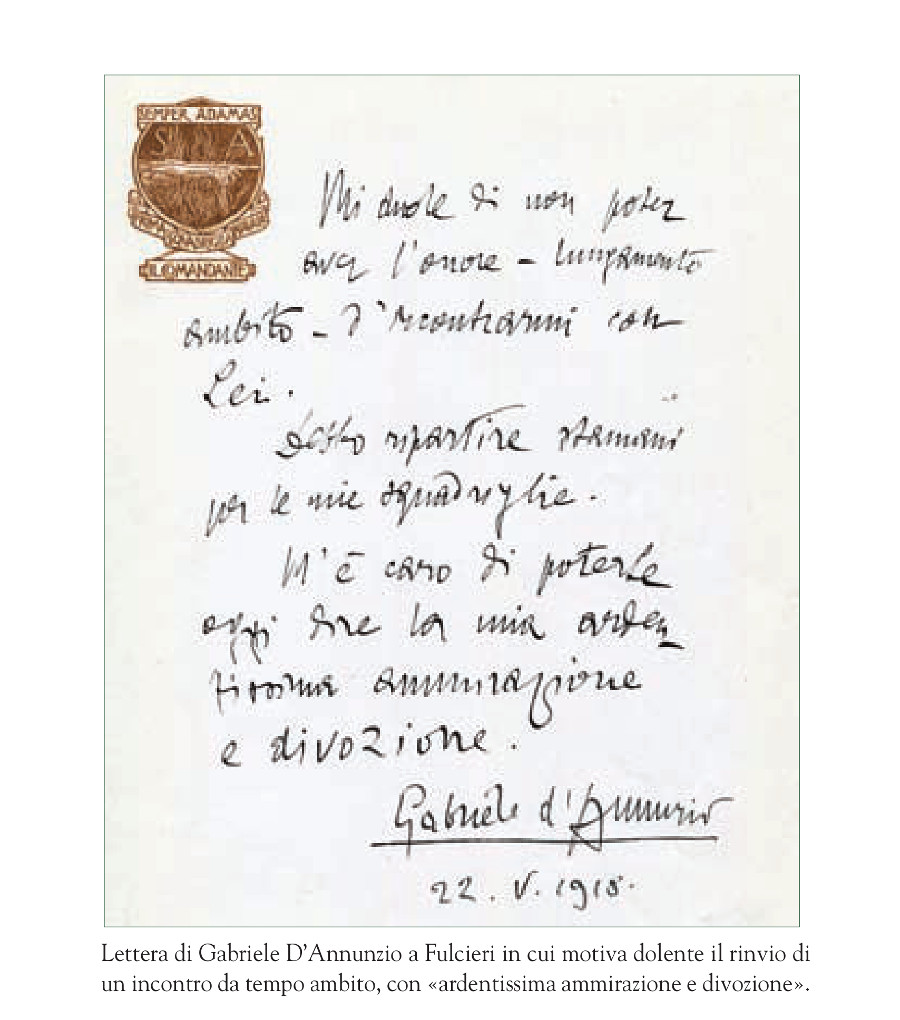 SEMPER ADAMAS
S A
IL COMANDANTE
Mi duole di non poter
aver l'onore – lungamente
ambito – d'incontrarmi con
Lei.
Debbo ripartire stamani
per le mie squadriglie.
M'è caro di poterLe
oggi dire la mia arden-
tissima ammirazione
e divozione.
Gabriele d'Annunzio
22. V. 1918.
Lettera di Gabriele D'Annunzio a Fulcieri in cui motiva dolente il rinvio di
un incontro da tempo ambito, con «ardentissima ammirazione e divozione».